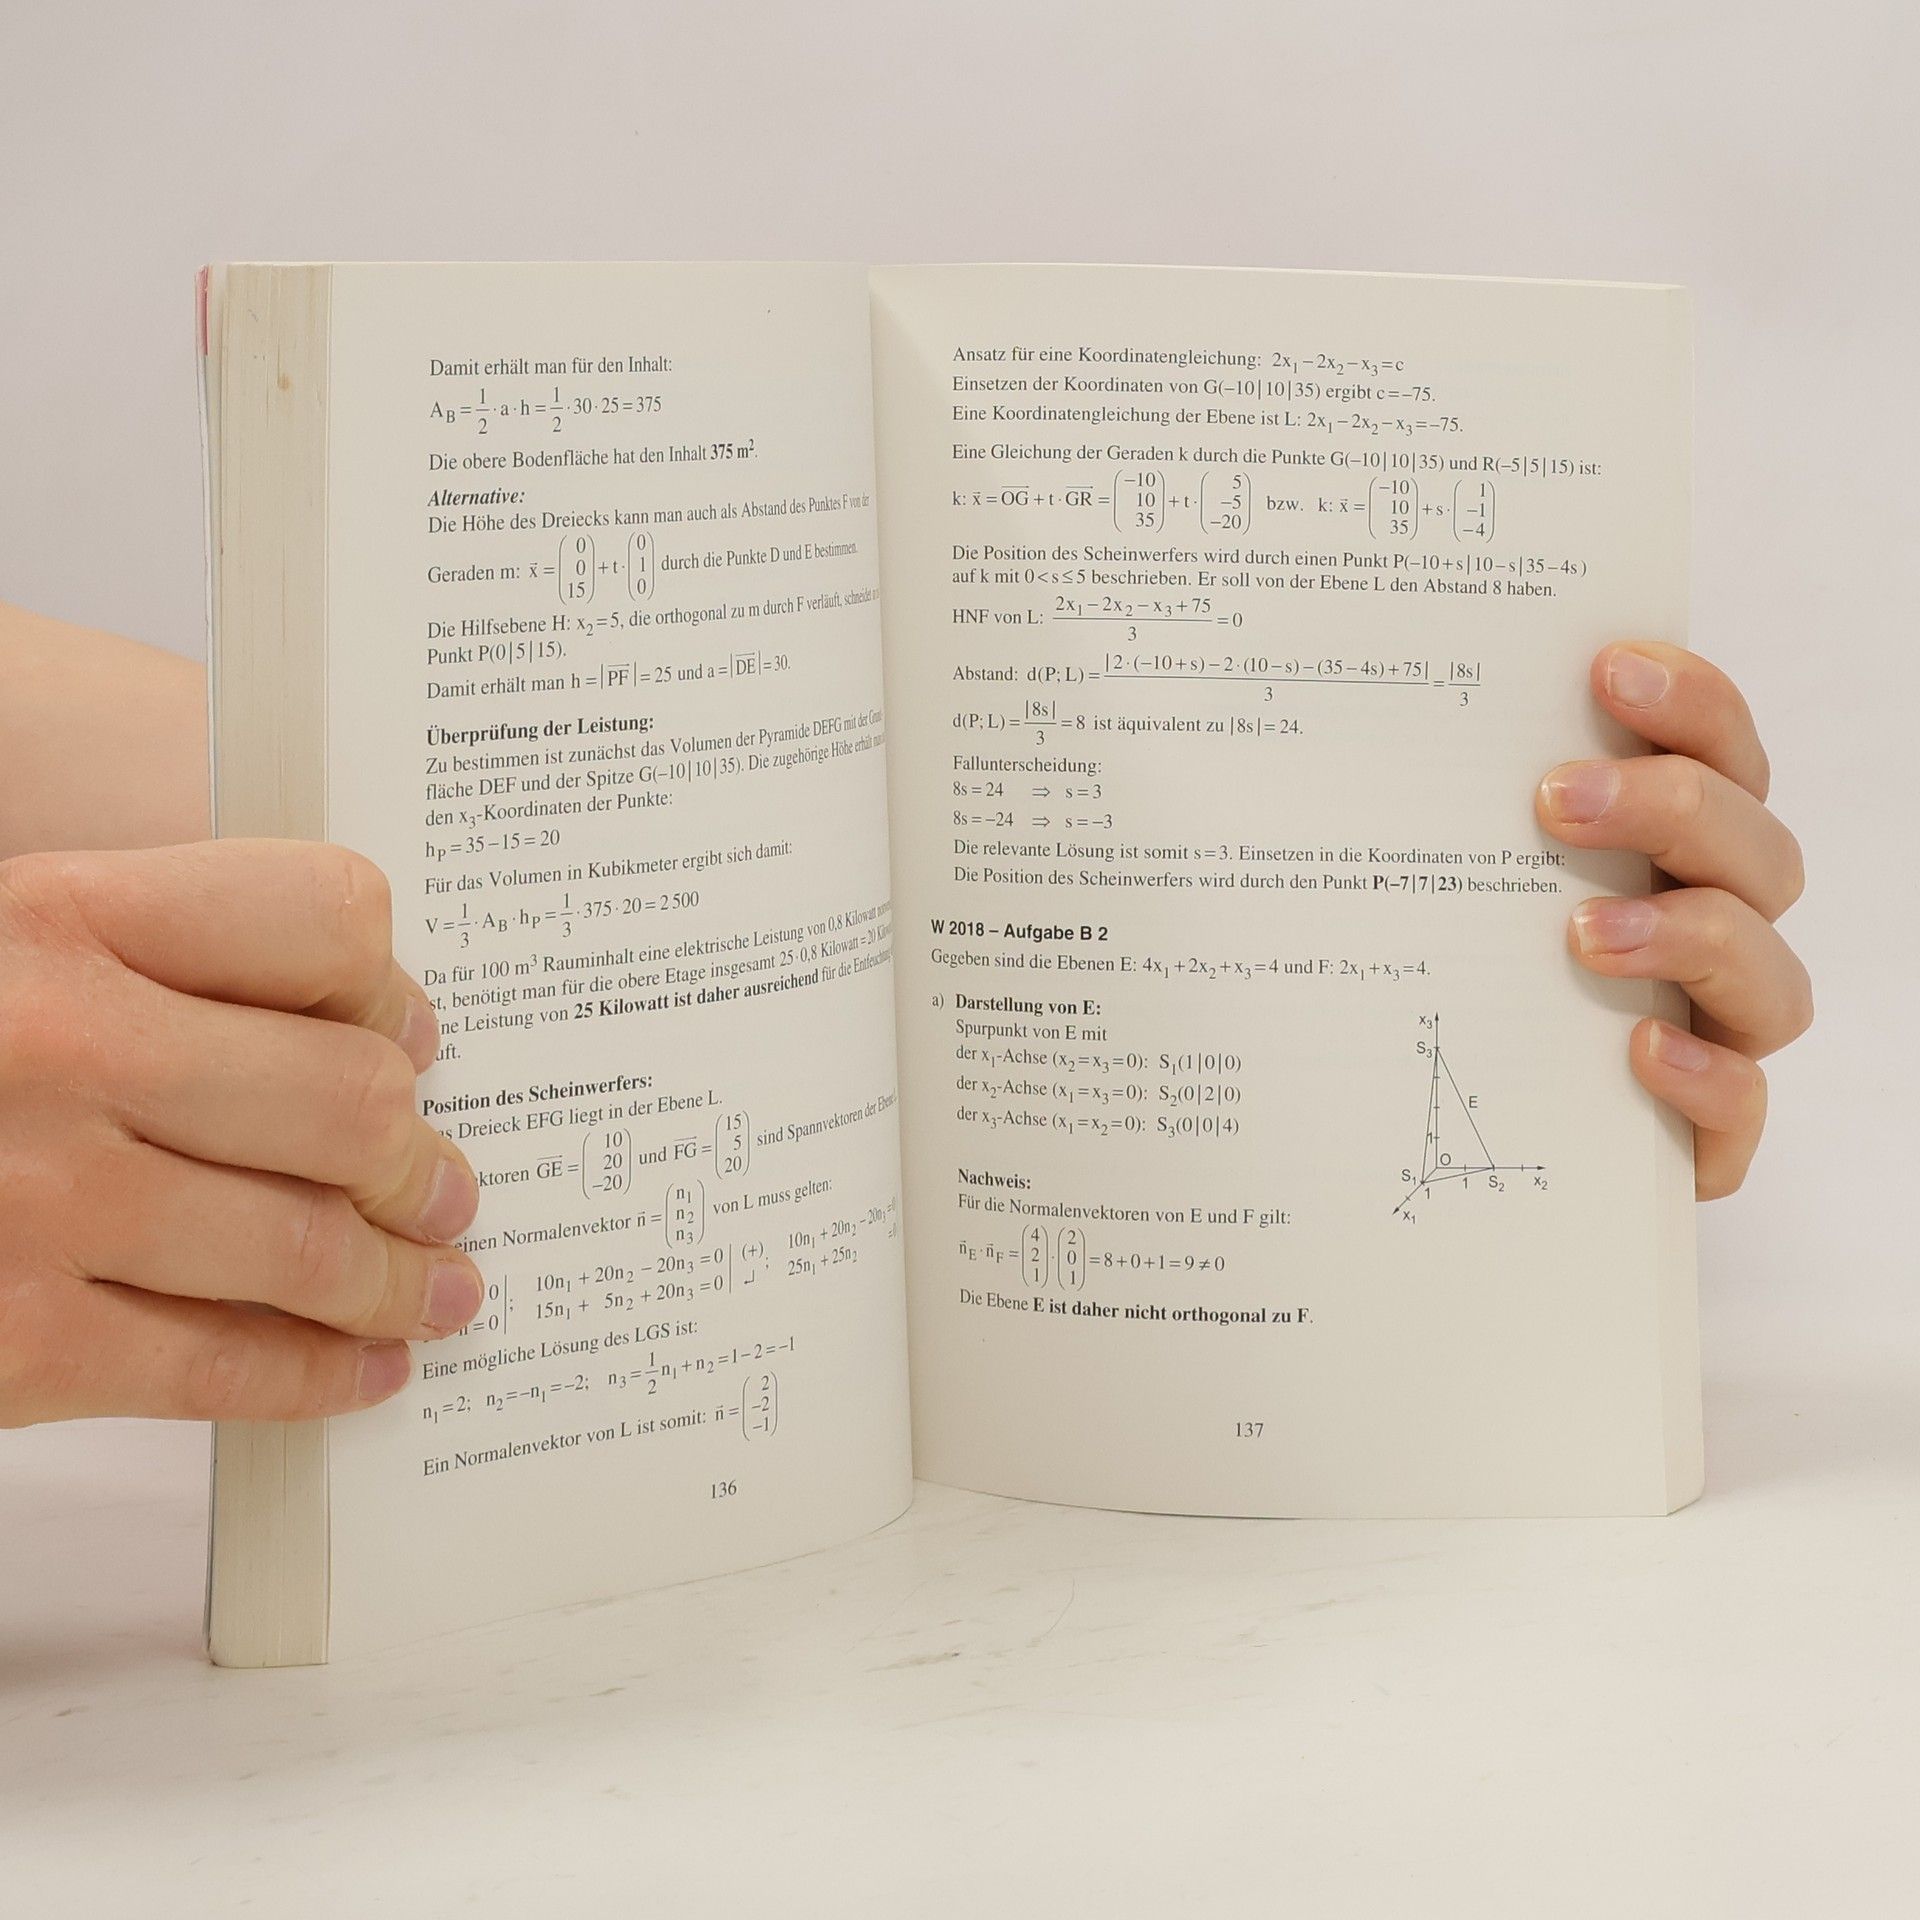 Damit erhält man für den Inhalt:
A_B = 1/2 · a · h = 1/2 · 30 · 25 = 375
Die obere Bodenfläche hat den Inhalt 375 m².
Alternative:
Die Höhe des Dreiecks kann man auch als Abstand des Punktes F von der
Geraden m: x⃗ = (0 0 15) + t · (0 1 0) durch die Punkte D und E bestimmen.
Die Hilfsebene H: x₂ = 5, die orthogonal zu m durch F verläuft, schneidet
Punkt P(0|5|15).
Damit erhält man h = |PF| = 25 und a = |DE| = 30.
Überprüfung der Leistung:
Zu bestimmen ist zunächst das Volumen der Pyramide DEFG mit der Grund-
fläche DEF und der Spitze G(–10|10|35). Die zugehörige Höhe erhält
den x₃-Koordinaten der Punkte:
h_P = 35 – 15 = 20
Für das Volumen in Kubikmeter ergibt sich damit:
V = 1/3 · A_B · h_P = 1/3 · 375 · 20 = 2 500
Da für 100 m³ Rauminhalt eine elektrische Leistung von 0,8 Kilowatt
st, benötigt man für die obere Etage insgesamt 25 · 0,8 Kilowatt = 20
ne Leistung von 25 Kilowatt ist daher ausreichend für die Entfeuchtung
uft.
Position des Scheinwerfers:
s Dreieck EFG liegt in der Ebene L.
ktoren GE = (10 20 –20) und FG = (15 5 20) sind Spannvektoren der Ebene
einen Normalenvektor n⃗ = (n₁ n₂ n₃) von L muss gelten:
0 ; 10n₁ + 20n₂ – 20n₃ = 0 | (+) ; 10n₁ + 20n₂ – 20n₃ = 0
n⃗ = 0 15n₁ + 5n₂ + 20n₃ = 0 | ↵ 25n₁ + 25n₂ = 0
Eine mögliche Lösung des LGS ist:
n₁ = 2; n₂ = –n₁ = –2; n₃ = 1/2 n₁ + n₂ = 1 – 2 = –1
Ein Normalenvektor von L ist somit: n⃗ = (2 –2 –1)
136
Ansatz für eine Koordinatengleichung: 2x₁ – 2x₂ – x₃ = c
Einsetzen der Koordinaten von G(–10|10|35) ergibt c = –75.
Eine Koordinatengleichung der Ebene ist L: 2x₁ – 2x₂ – x₃ = –75.
Eine Gleichung der Geraden k durch die Punkte G(–10|10|35) und R(–5|5|15) ist:
k: x⃗ = OG + t · GR = (–10 10 35) + t · (5 –5 –20) bzw. k: x⃗ = (–10 10 35) + s · (1 –1 –4)
Die Position des Scheinwerfers wird durch einen Punkt P(–10+s|10–s|35–4s)
auf k mit 0 < s ≤ 5 beschrieben. Er soll von der Ebene L den Abstand 8 haben.
HNF von L: (2x₁ – 2x₂ – x₃ + 75)/3 = 0
Abstand: d(P; L) = |2·(–10+s) – 2·(10–s) – (35–4s) + 75|/3 = |8s|/3
d(P; L) = |8s|/3 = 8 ist äquivalent zu |8s| = 24.
Fallunterscheidung:
8s = 24 ⇒ s = 3
8s = –24 ⇒ s = –3
Die relevante Lösung ist somit s = 3. Einsetzen in die Koordinaten von P ergibt:
Die Position des Scheinwerfers wird durch den Punkt P(–7|7|23) beschrieben.
W 2018 – Aufgabe B 2
Gegeben sind die Ebenen E: 4x₁ + 2x₂ + x₃ = 4 und F: 2x₁ + x₃ = 4.
a) Darstellung von E:
Spurpunkt von E mit
der x₁-Achse (x₂ = x₃ = 0): S₁(1|0|0)
der x₂-Achse (x₁ = x₃ = 0): S₂(0|2|0)
der x₃-Achse (x₁ = x₂ = 0): S₃(0|0|4)
x₃
S₃
E
1
O
S₁
1
1
S₂
x₂
x₁
Nachweis:
Für die Normalenvektoren von E und F gilt:
n⃗_E · n⃗_F = (4 2 1) · (2 0 1) = 8 + 0 + 1 = 9 ≠ 0
Die Ebene E ist daher nicht orthogonal zu F.
137